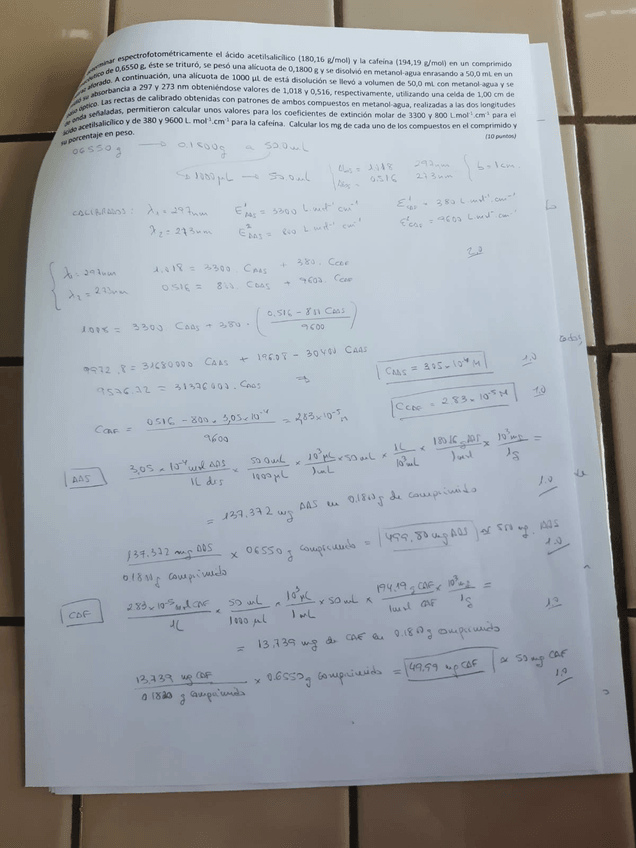 minar espectrofotométricamente el ácido acetilsalicílico (180,16 g/mol) y la cafeína (194,19 g/mol) en un comprimido
de 0,6550 g, éste se trituró, se pesó una alícuota de 0,1800 g y se disolvió en metanol-agua enrasando a 50,0 mL en un
aforado. A continuación, una alícuota de 1000 µL de está disolución se llevó a volumen de 50,0 mL con metanol-agua y se
su absorbancia a 297 y 273 nm obteniéndose valores de 1,018 y 0,516, respectivamente, utilizando una celda de 1,00 cm de
óptico. Las rectas de calibrado obtenidas con patrones de ambos compuestos en metanol-agua, realizadas a las dos longitudes
onda señaladas, permitieron calcular unos valores para los coeficientes de extinción molar de 3300 y 800 L.mol⁻¹.cm⁻¹ para el
ácido acetilsalicílico y de 380 y 9600 L. mol⁻¹.cm⁻¹ para la cafeína. Calcular los mg de cada uno de los compuestos en el comprimido y
su porcentaje en peso. (10 puntos)
06550g → 0.1800g → 50.0mL
→ 1000µL → 50.0mL 1.018 297nm b=1cm
0.516 273nm
CALIBRADOS: λ₁ = 297nm E¹AAS = 3300 L mol⁻¹ cm⁻¹ E¹CAF = 380 L mol⁻¹ cm⁻¹
λ₂ = 273nm E²AAS = 800 L mol⁻¹ cm⁻¹ E²CAF = 9600 L mol⁻¹ cm⁻¹
λ₁ = 297nm 1.018 = 3300 CAAS + 380 CCAF
λ₂ = 273nm 0.516 = 800 CAAS + 9600 CCAF
1.018 = 3300 CAAS + 380 · (0.516 - 800 CAAS / 9600)
9772.8 = 31680000 CAAS + 196.08 - 304000 CAAS
9576.72 = 31376000 · CAAS ⇒ CAAS = 3.05 · 10⁻⁴ M 1.0
CCAF = 0.516 - 800 × 3,05×10⁻⁴ / 9600 = 2,83×10⁻⁵ M CCAF = 2.83 · 10⁻⁵ M 1.0
AAS 3,05 × 10⁻⁴ mol AAS / 1L dis × 50.0mL / 1000µL × 10³µL / 1mL × 50mL × 1L / 10³mL × 180.16 g AAS / 1mol × 10³mg / 1g =
= 137.372 mg AAS en 0.1800g de comprimido 1.0
137.372 mg AAS / 0.1800 g comprimido × 06550g comprimido = 499.88 mg AAS ≈ 500 mg AAS 1.0
CAF 2.83×10⁻⁵ mol CAF / 1L × 50 mL / 1000 µL × 10³µL / 1mL × 50mL × 194.19 g CAF / 1mol CAF × 10³mg / 1g =
= 13.739 mg de CAF en 0.1800g comprimido 1.0
13.739 mg CAF / 0.1800 g comprimido × 0.6550g comprimido = 49.99 mg CAF ≈ 50 mg CAF 1.0